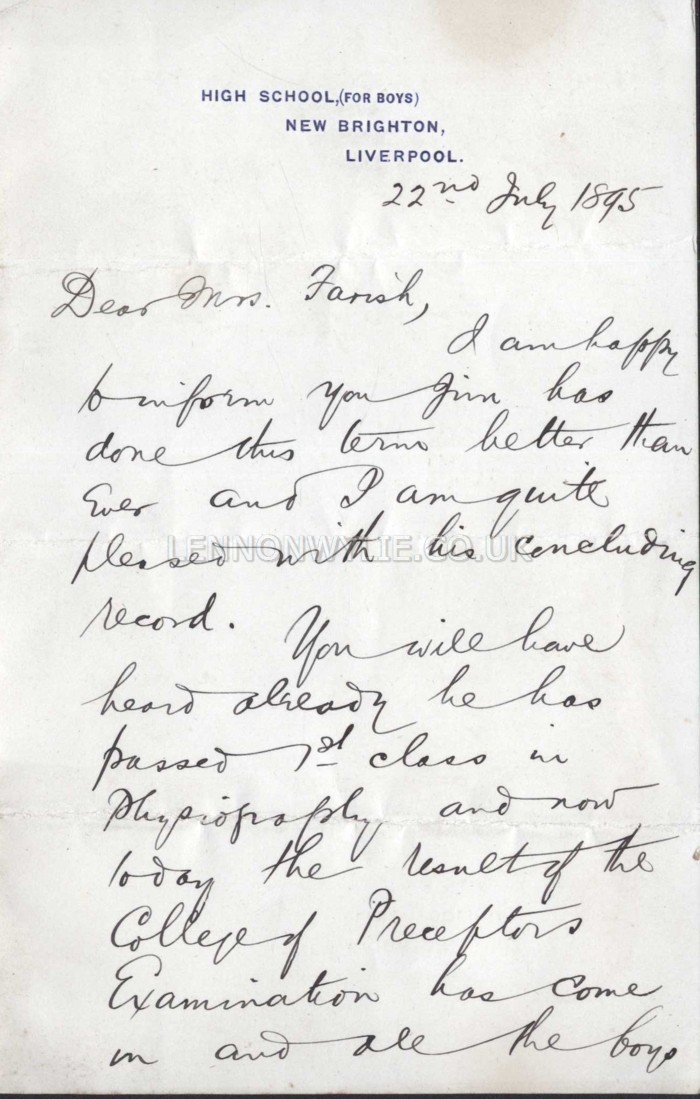 HIGH SCHOOL, (FOR BOYS)
NEW BRIGHTON,
LIVERPOOL.
22nd July 1895
Dear Mrs. Farish,
I am happy
to inform you Jim has
done this term better than
Ever and I am quite
pleased with his concluding
LENNONWYLIE.CO.UK
record. You will have
heard already he has
passed 1st class in
Physiography and now
today the result of the
College of Preceptors
Examination has come
in and all the boys